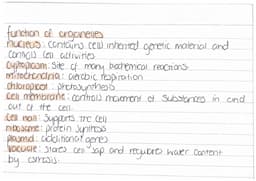 function of organelles
nucleus: contains cell inherited genetic material and
controls cell activities
cytoplasm: site of many biochemical reactions
mitochondria: aerobic respiration
chloroplast: photosynthesis
cell membrane: controls movement of substances in and
out of the cell.
cell wall: supports the cell
ribosome: protein synthesis
plasmid: additional genes
vacuole: stores cell sap and regulates water content
by osmosis.